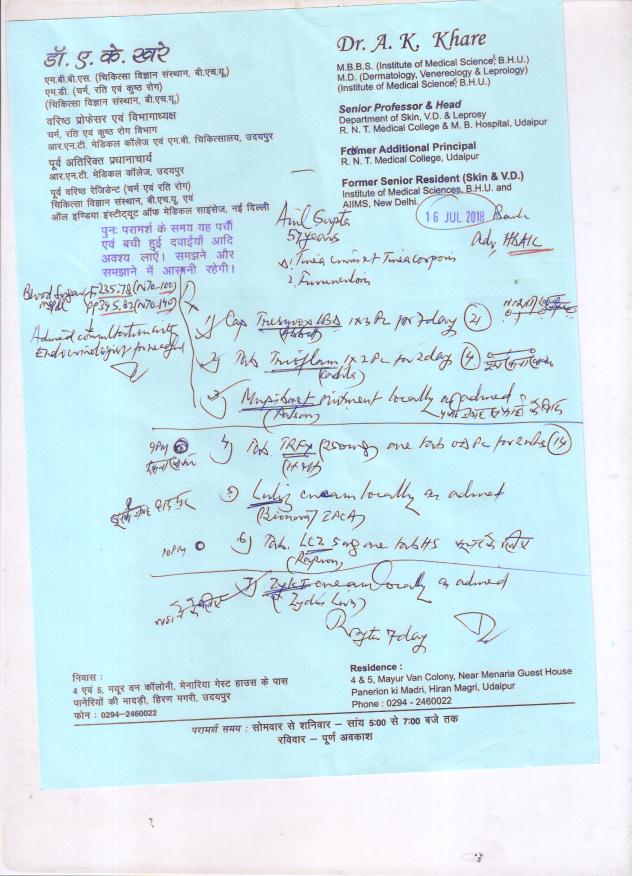 डॉ. ए. के. खरे
एम.बी.बी.एस. (चिकित्सा विज्ञान संस्थान, बी.एच.यू.)
एम.डी. (चर्म, रति एवं कुष्ठ रोग)
(चिकित्सा विज्ञान संस्थान, बी.एच.यू.)
वरिष्ठ प्रोफेसर एवं विभागाध्यक्ष
चर्म, रति एवं कुष्ठ रोग विभाग
आर.एन.टी. मेडिकल कॉलेज एवं एम.बी. चिकित्सालय, उदयपुर
पूर्व अतिरिक्त प्रधानाचार्य
आर.एन.टी. मेडिकल कॉलेज, उदयपुर
पूर्व वरिष्ठ रेजिडेन्ट (चर्म एवं रति रोग)
चिकित्सा विज्ञान संस्थान, बी.एच.यू. एवं
ऑल इण्डिया इंस्टीट्यूट ऑफ मेडिकल साइंसेज, नई दिल्ली
Dr. A. K. Khare
M.B.B.S. (Institute of Medical Science, B.H.U.)
M.D. (Dermatology, Venereology & Leprology)
(Institute of Medical Science, B.H.U.)
Senior Professor & Head
Department of Skin, V.D. & Leprosy
R. N. T. Medical College & M. B. Hospital, Udaipur
Former Additional Principal
R. N. T. Medical College, Udaipur
Former Senior Resident (Skin & V.D.)
Institute of Medical Sciences, B.H.U. and
AIIMS, New Delhi.
16 JUL 2018
पुनः परामर्श के समय यह पर्ची
एवं बची हुई दवाईयाँ आदि
अवश्य लाएँ। समझने और
समझाने में आसानी रहेगी।
Anil Gupta
57 years
Adv HBA1C
1. Tinea cruris et Tinea corporis
2. Furunculosis
Blood Sugar F 235.78 (70-100)
PP 345.82 (70-140)
Advised consultation with
Endocrinologist
1) Cap 1x3 PC for 7 day 21
(Abbott)
2) Tab Trioflam 1x2 PC for 2 day 4
(Cadila)
3) ointment locally as advised
9 PM 4) Tab. (250mg) one tab OD PC for 2 wks 14
5) Luliz cream locally as advised
10 PM 6) Tab. LCZ 5 mg one tab HS
7) cream locally as advised
R after 7 day
निवास :
4 एवं 5, मयूर वन कॉलोनी, मेनारिया गेस्ट हाउस के पास
पानेरियों की मादड़ी, हिरण मगरी, उदयपुर
फोन : 0294-2460022
Residence :
4 & 5, Mayur Van Colony, Near Menaria Guest House
Panerion ki Madri, Hiran Magri, Udaipur
Phone : 0294 - 2460022
परामर्श समय : सोमवार से शनिवार – सांय 5:00 से 7:00 बजे तक
रविवार – पूर्ण अवकाश